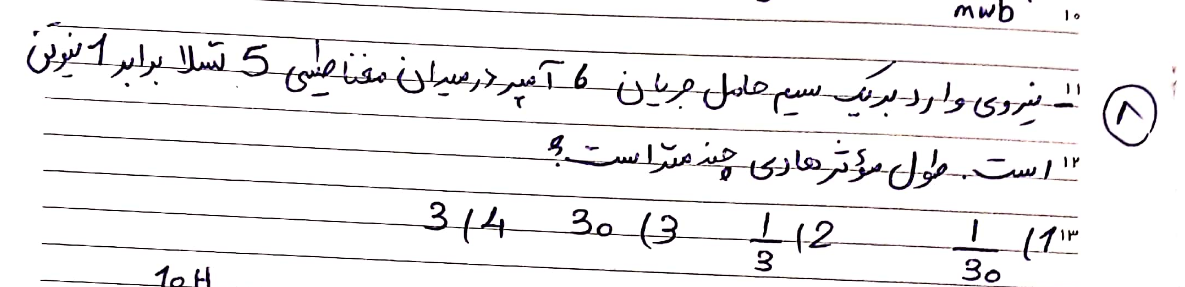 mwb ۱۰
۱۱ - نیروی وارد بر یک سیم حامل جریان 6 آمپر در میدان مغناطیسی 5 تسلا برابر 1 نیوتن
۸
۱۲ است. طول مؤثر هادی چند متر است؟
۱۳ 1) 1/30 2) 1/3 3) 30 4) 3
10H